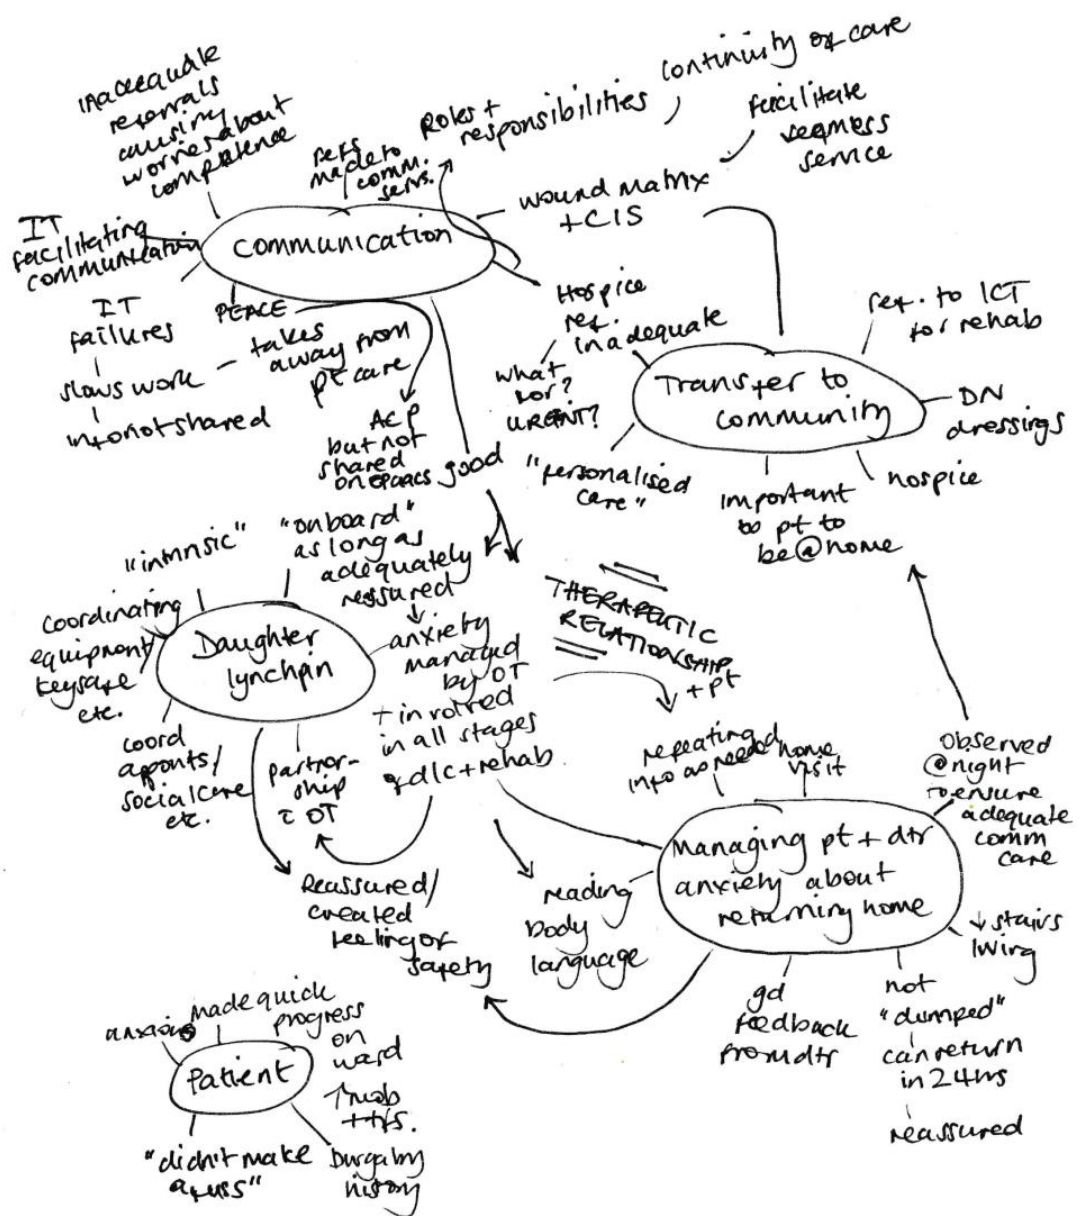 inadequate
referrals
causing
worries about
competence
refs
made to
comm.
servs.
Roles +
responsibilities
continuity of care
facilitate
seamless
service
wound matrix
+ CIS
IT
facilitating
communication
Communication
IT
failures
slows work
info not shared
PEACE
takes
away from
pt care
ACP
but not
shared
on epaccs
good
Hospice
ref.
inadequate
what
for?
URGENT?
Transfer to
community
ref. to ICT
for rehab
DN
dressings
hospice
important
to pt to
be @ home
"personalised
care"
"intrinsic"
"onboard"
as long as
adequately
reassured
coordinating
equipment/
keysafe
etc.
Daughter
lynchpin
anxiety
managed
by OT
+ involved
in all stages
of d/c + rehab
coord
appnts/
social care
etc.
partner-
ship
c OT
THERAPEUTIC
RELATIONSHIP
+ pt
Reassured/
created
feeling of
safety
repeating
info as need
home
visit
observed
@ night
to ensure
adequate
comm
care
Managing pt + dtr
anxiety about
returning home
reading
body
language
↓ stairs
living
gd
feedback
from dtr
not
"dumped"
can return
in 24hrs
reassured
anxious
made quick
progress
on
ward
↑ mob
+ tfs.
Patient
"didn't make
a fuss"
burgalry
history